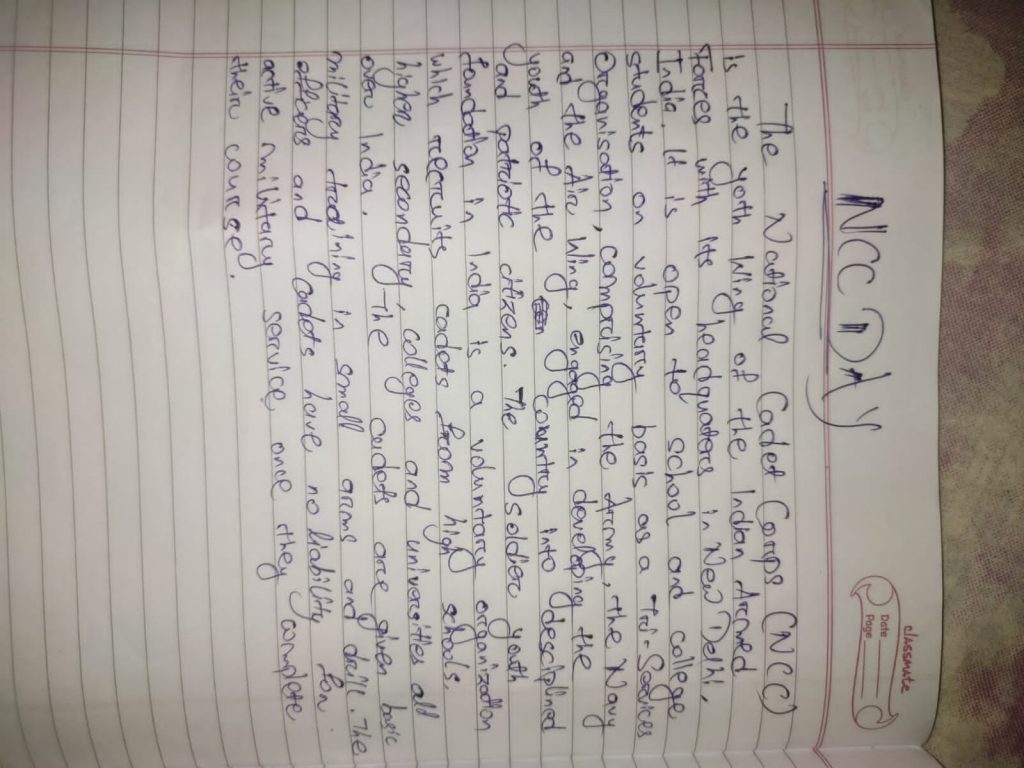 classmate
Date
Page
NCC DAY
The National Cadet Corps (NCC)
is the yoth Wing of the Indan Armed
Forces with its headquaters in New Delhi,
India. It is open to school and college
students on voluntarry basis as a Tri-Sevices
Organisation, comprising the Army, the Navy
and the Air Wing, engaged in developing the
youth of the country into desciplined
and patriotic citizens. The soldier youth
foundation in India is a voluntary organization
which recruits cadets from high schools,
higher secondary, colleges and universities all
over India. The cadets are given basic
military training in small arms and drill. The
officers and cadets have no liability for
active military service one they complete
their coursed.